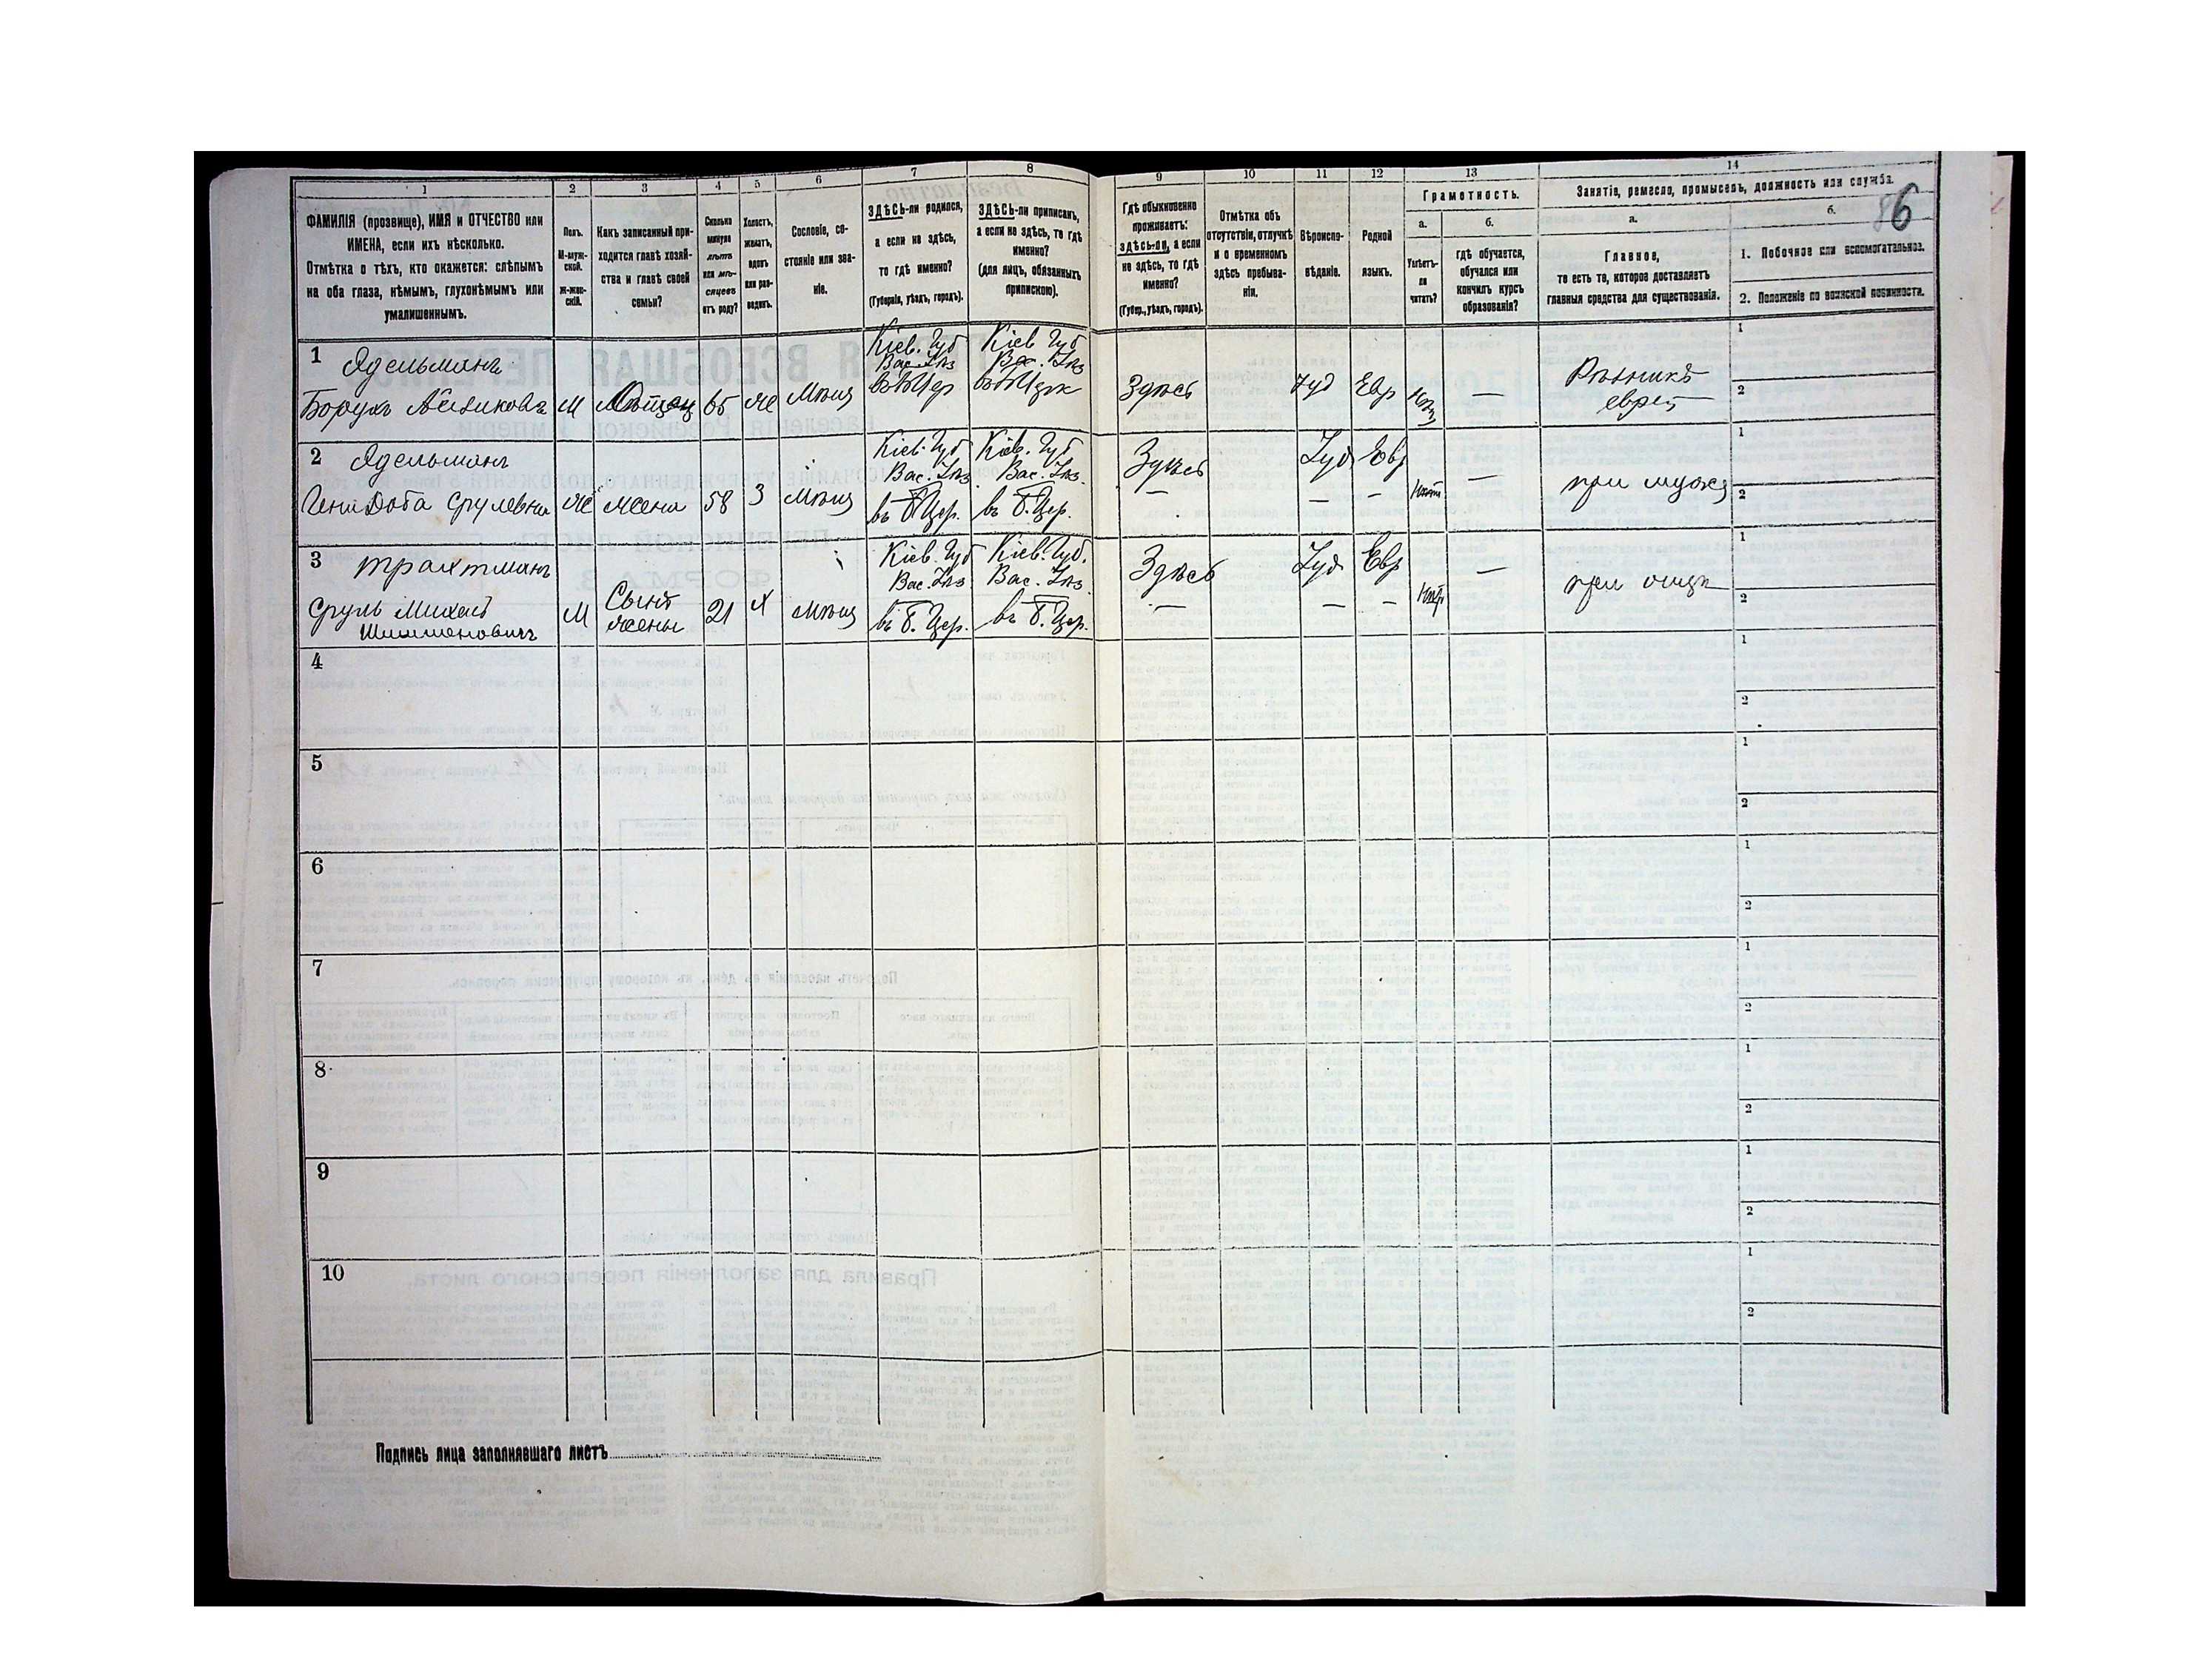 1 2 3 4 5 6 7 8 9 10 11 12 13 14
ФАМИЛІЯ (прозвище), ИМЯ и ОТЧЕСТВО или
ИМЕНА, если ихъ нѣсколько.
Отмѣтка о тѣхъ, кто окажется: слѣпымъ
на оба глаза, нѣмымъ, глухонѣмымъ или
умалишеннымъ.
Полъ.
М-муж-
ской.
Ж-жен-
скій.
Какъ записанный при-
ходится главѣ хозяй-
ства и главѣ своей
семьи?
Сколько
минуло
лѣтъ
или мѣ-
сяцевъ
отъ роду?
Холостъ,
женатъ,
вдовъ
или раз-
веденъ.
Сословіе, со-
стояніе или зва-
ніе.
ЗДѢСЬ-ли родился,
а если не здѣсь,
то гдѣ именно?
(Губернія, уѣздъ, городъ).
ЗДѢСЬ-ли приписанъ,
а если не здѣсь, то гдѣ
именно?
(для лицъ, обязанныхъ
припискою).
Гдѣ обыкновенно
проживаетъ:
здѣсь-ли, а если
не здѣсь, то гдѣ
именно?
(Губер., уѣздъ, городъ).
Отмѣтка объ
отсутствіи, отлучкѣ
и о временномъ
здѣсь пребыва-
ніи.
Вѣроиспо-
вѣданіе.
Родной
языкъ.
Грамотность.
а.
Умѣетъ-
ли
читать?
б.
гдѣ обучается,
обучался или
кончилъ курсъ
образованія?
Занятіе, ремесло, промыселъ, должность или служба.
86
а.
Главное,
то есть то, которое доставляетъ
главныя средства для существованія.
б.
1. Побочное или вспомогательное.
2. Положеніе по воинской повинности.
1 Эдельманъ
Борухъ М 65 Мѣщ
Кіев. Губ
Вас. Уѣз
Кіев Губ
Вас. Уѣз
Здѣсь Іуд Евр —
Рѣзникъ
еврей
1
2
2 Эдельманъ
Доба Срулевна Ж жена 58 З Мѣщ
Кіев. Губ
Вас. Уѣз.
въ Б. Цер.
Кіев. Губ
Вас. Уѣз.
въ Б. Цер.
Здѣсь Іуд Евр —
— — —
при мужѣ
1
2
3 Трахтманъ
Сруль Михель
Шимоновичъ
М
Сынъ
жены
21 Х Мѣщ
Кіев. Губ
Вас. Уѣз.
въ Б. Цер.
Кіев. Губ.
Вас. Уѣз.
въ Б. Цер.
Здѣсь Іуд Евр —
— — —
при отцѣ
1
2
4
1
2
5
1
2
6
1
2
7
1
2
8
1
2
9
1
2
10
1
2
Подпись лица заполнявшаго листъ